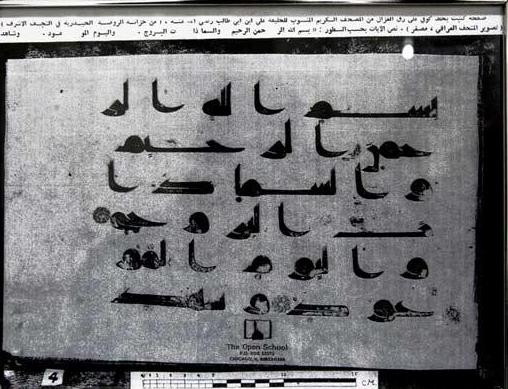 صفحة كتبت بخط كوفي على رق الغزال من المصحف الكريم المنسوب للخليفة علي ابن ابي طالب رضي الله عنه ، ( من خزانة الروضة الحيدرية في النجف الاشرف )
( تصوير المتحف العراقي ، مصغر ) . نص الآيات بحسب السطور : « بسم الله الر حمن الرحيم والسما ذا ت البروج . واليوم المو عود . وشاهد
بسم الله الر
حمن الرحيم
والسما ذا
ت البروج
واليوم المو
عود وشاهد
The Open School
P.O. BOX
CHICAGO, IL
4
CM.